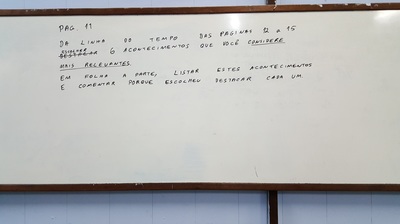 PAG. 11
DA LINHA DO TEMPO DAS PÁGINAS 12 a 15
ESCOLHER
DESTACAR 6 ACONTECIMENTOS QUE VOCÊ CONSIDERE
MAIS RELEVANTES.
EM FOLHA A PARTE, LISTAR ESTES ACONTECIMENTOS
E COMENTAR PORQUE ESCOLHEU DESTACAR CADA UM.